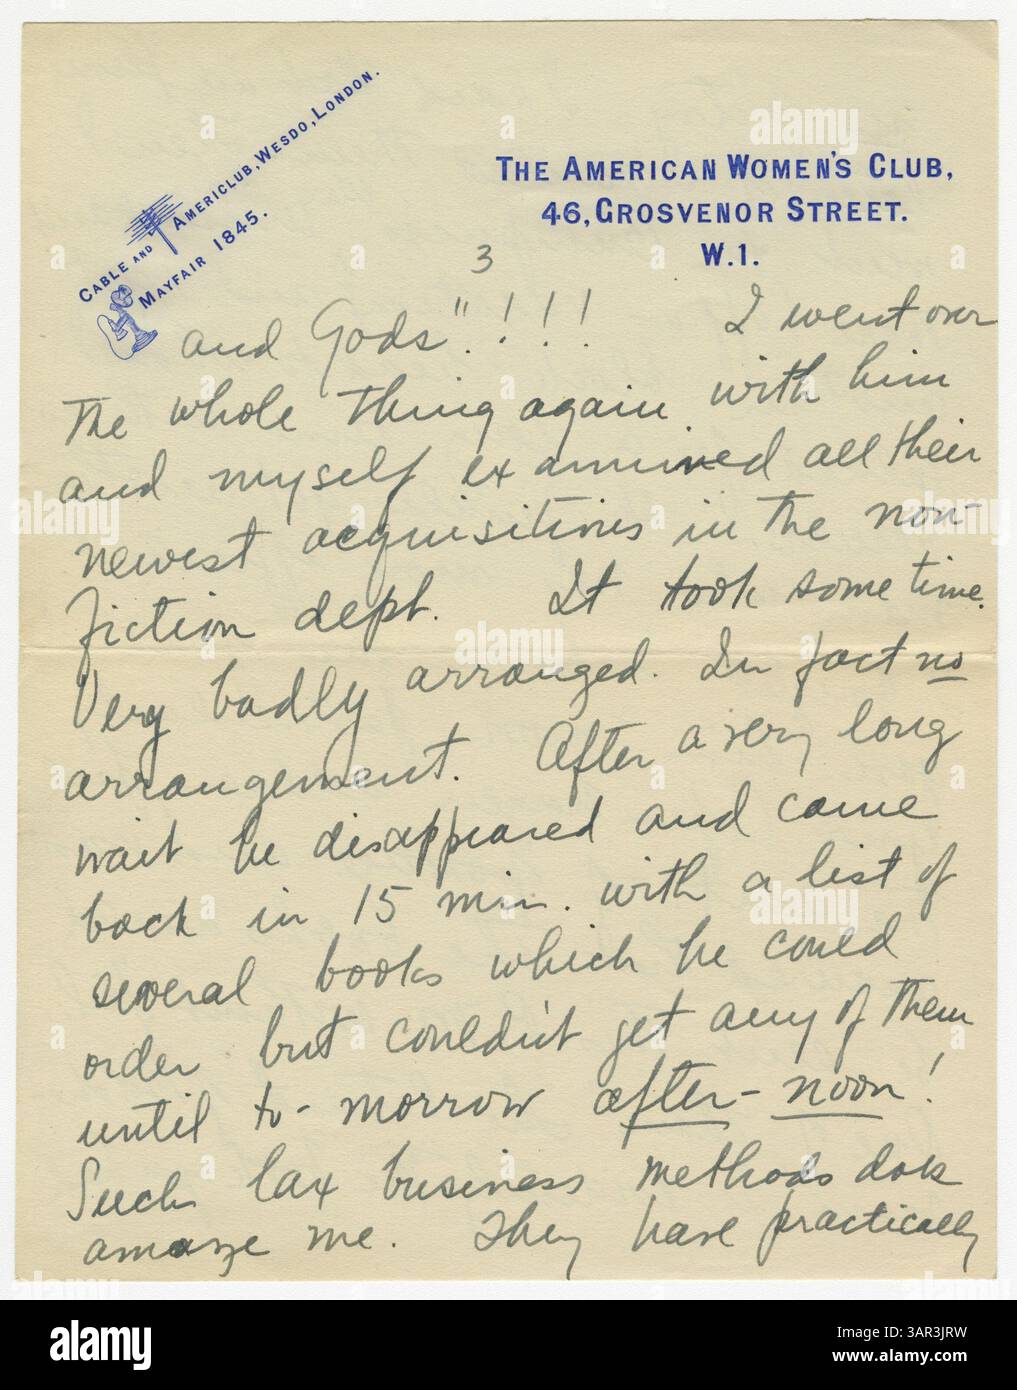 CABLE AND AMERICLUB, WESDO, LONDON.
MAYFAIR 1845.
THE AMERICAN WOMEN'S CLUB,
46, GROSVENOR STREET.
W.1.
3
and Gods"!!!! I went over
the whole thing again with him
and myself examined all their
newest acquisitions in the non-
fiction dept. It took some time.
Very badly arranged. In fact no
arrangement. After a very long
wait he disappeared and came
back in 15 min. with a list of
several books which he could
order but couldn't get any of them
until to-morrow after-noon!
Such lax business methods does
amaze me. They have practically
alamy
Image ID: 3AR3JRW
www.alamy.com